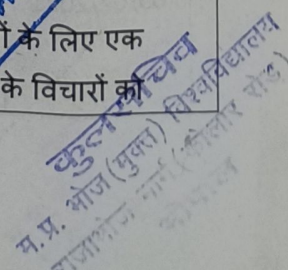 के लिए एक
के विचारों को
कुलसचिव
म.प्र. भोज (मुक्त) विश्वविद्यालय
राजाभोज मार्ग (कोलार रोड)
भोपाल